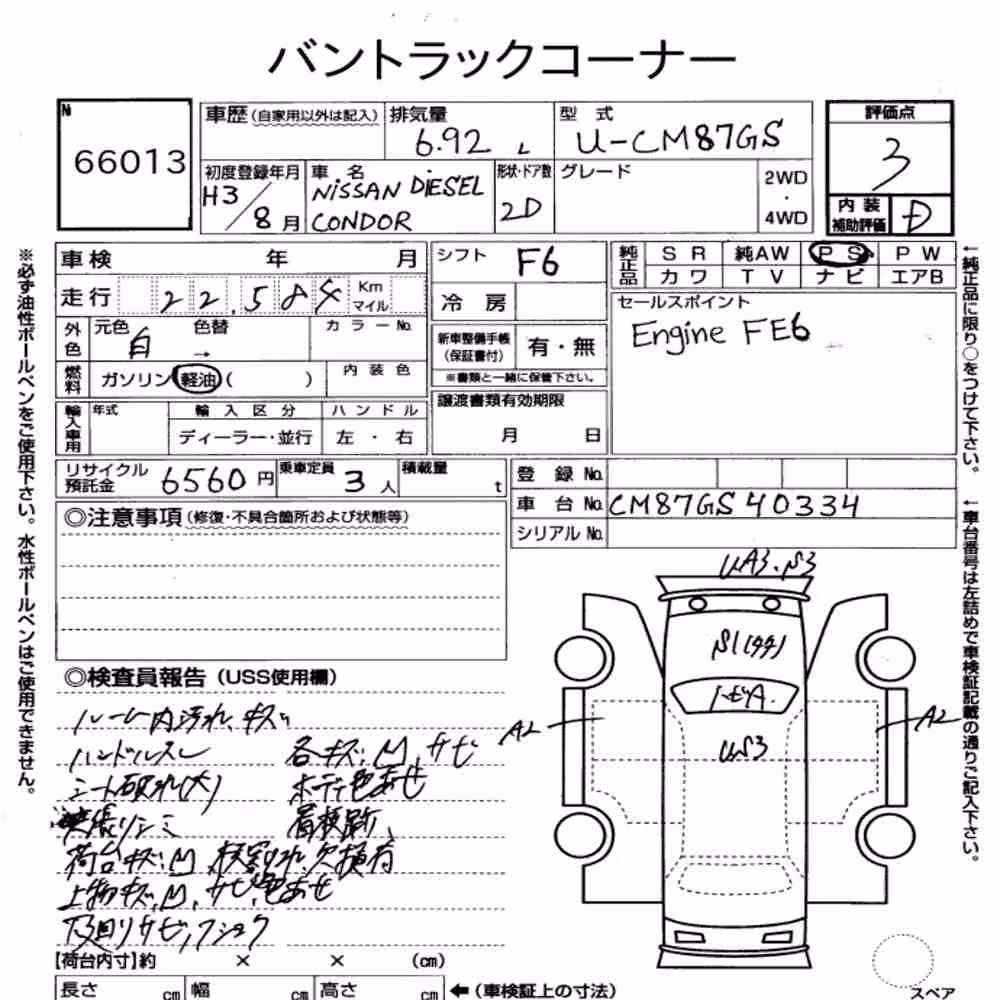 バントラックコーナー
№ 66013
車歴(自家用以外は記入) 排気量 6.92 L 型式 U-CM87GS 評価点 3
初度登録年月 H3/8月 車名 NISSAN DIESEL CONDOR 形状・ドア数 2D グレード 2WD・4WD
内装補助評価 D
車検 年 月 シフト F6 純正品 SR 純AW PS PW
カワ TV ナビ エアB
走行 22,584 Km マイル 冷房 セールスポイント
Engine FE6
外色 元色 白 色替 → カラーNo. 新車整備手帳(保証書付) 有・無
燃料 ガソリン 軽油 ( ) 内装色 ※書類と一緒に保管下さい。
輸入車用 年式 輸入区分 ハンドル 譲渡書類有効期限
ディーラー・並行 左・右 月 日
リサイクル預託金 6560円 乗車定員 3人 積載量 t 登録No.
車台No. CM87GS40334
シリアルNo.
◎注意事項(修復・不具合箇所および状態等)
UA3.S3
S1(タタ)
A2
A2
US3
◎検査員報告(USS使用欄)
ルーム内汚れ、キズ
ハンドルスレ 各キズ、凹、サビ
シート破れ(大) ボディ色あせ
荷台キズ、凹、板割れ、欠損有
上物キズ、凹、サビ、色あせ
下回りサビ、フショク
【荷台内寸】約 × × (cm)
長さ cm 幅 cm 高さ cm ←(車検証上の寸法)
スペア
※必ず油性ボールペンをご使用下さい。水性ボールペンはご使用できません。
←純正品に限り○をつけて下さい。
←車台番号は左詰めで車検証記載の通りご記入下さい。